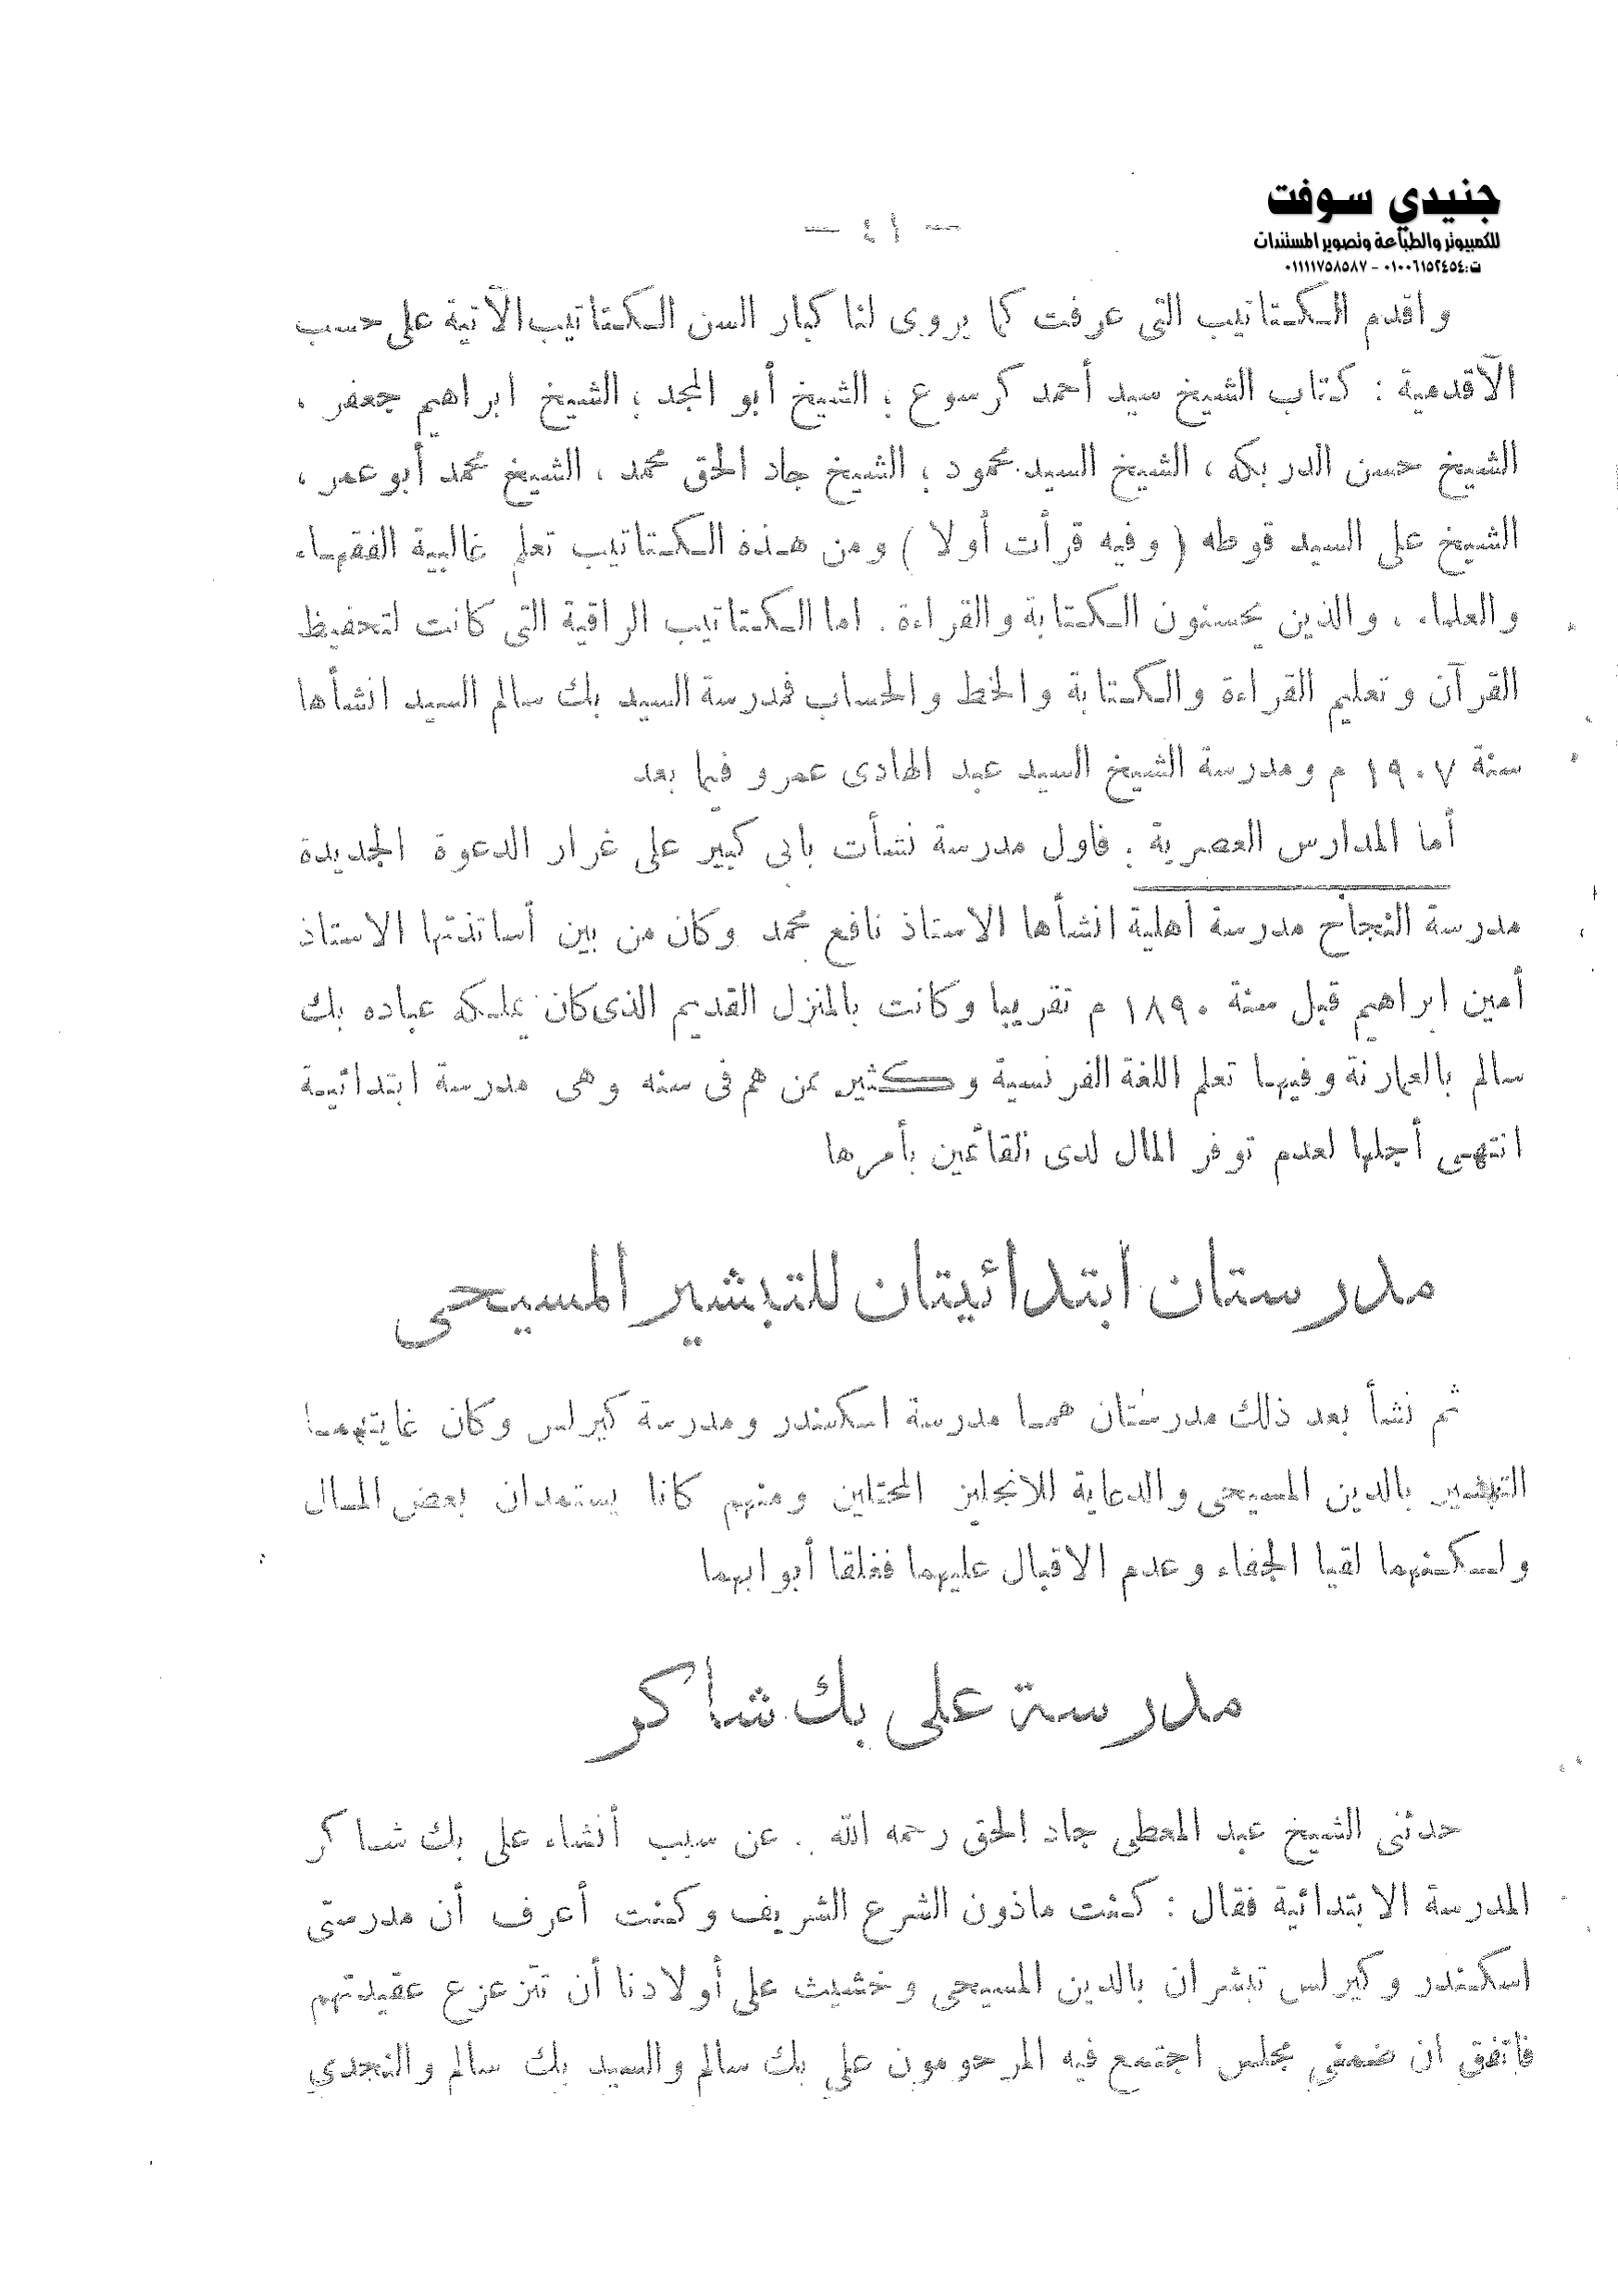 جنيدي سوفت
للكمبيوتر والطباعة وتصوير المستندات
ت:٠١٠٠٦١٥٢٤٥٤ - ٠١١١١٧٥٨٥٨٧
— ٤١ —
واقدم الكتاتيب التى عرفت كما يروى لنا كبار السن الكتاتيب الآتية على حسب
الآقدمية : كتاب الشيخ سيد أحمد كرسوع ؛ الشيخ أبو المجد ؛ الشيخ ابراهيم جعفر ،
الشيخ حسن الدربكه ، الشيخ السيد محمود ؛ الشيخ جاد الحق محمد ، الشيخ محمد أبو عمر ،
الشيخ على السيد قوطه ( وفيه قرأت أولا ) ومن هذه الكتاتيب تعلم غالبية الفقهاء
والعلماء ، والذين يحسنون الكتابة والقراءة . اما الكتاتيب الراقية التى كانت لتحفيظ
القرآن وتعليم القراءة والكتابة والخط والحساب فمدرسة السيد بك سالم السيد انشأها
سنة ١٩٠٧ م ومدرسة الشيخ السيد عبد الهادى عمرو فيما بعد
أما المدارس العصرية . فاول مدرسة نشأت بابى كبير على غرار الدعوة الجديدة
مدرسة النجاح مدرسة أهلية انشأها الاستاذ نافع محمد وكان من بين أساتذتها الاستاذ
أمين ابراهيم قبل سنة ١٨٩٠ م تقريبا وكانت بالمنزل القديم الذى كان يملكه عباده بك
سالم بالعمارنة وفيها تعلم اللغة الفرنسية وكثير ممن هم فى سنه وهى مدرسة ابتدائية
انتهى أجلها لعدم توفر المال لدى القائمين بأمرها
مدرستان ابتدائيتان للتبشير المسيحى
ثم نشأ بعد ذلك مدرستان هما مدرسة اسكندر ومدرسة كيرلس وكان غايتهما
التبشير بالدين المسيحى والدعاية للانجليز المحتلين ومنهم كانا يستمدان بعض المال
ولكنهما لقيا الجفاء وعدم الاقبال عليهما فغلقا أبوابهما
مدرسة على بك شاكر
حدثنى الشيخ عبد المعطى جاد الحق رحمه الله . عن سبب أنشاء على بك شاكر
المدرسة الابتدائية فقال : كنت ماذون الشرع الشريف وكنت أعرف أن مدرستى
اسكندر وكيرلس تبشران بالدين المسيحى وخشيت على أولادنا أن تتزعزع عقيدتهم
فاتفق ان ضمنى مجلس اجتمع فيه المرحومون على بك سالم والسيد بك سالم والنجدي